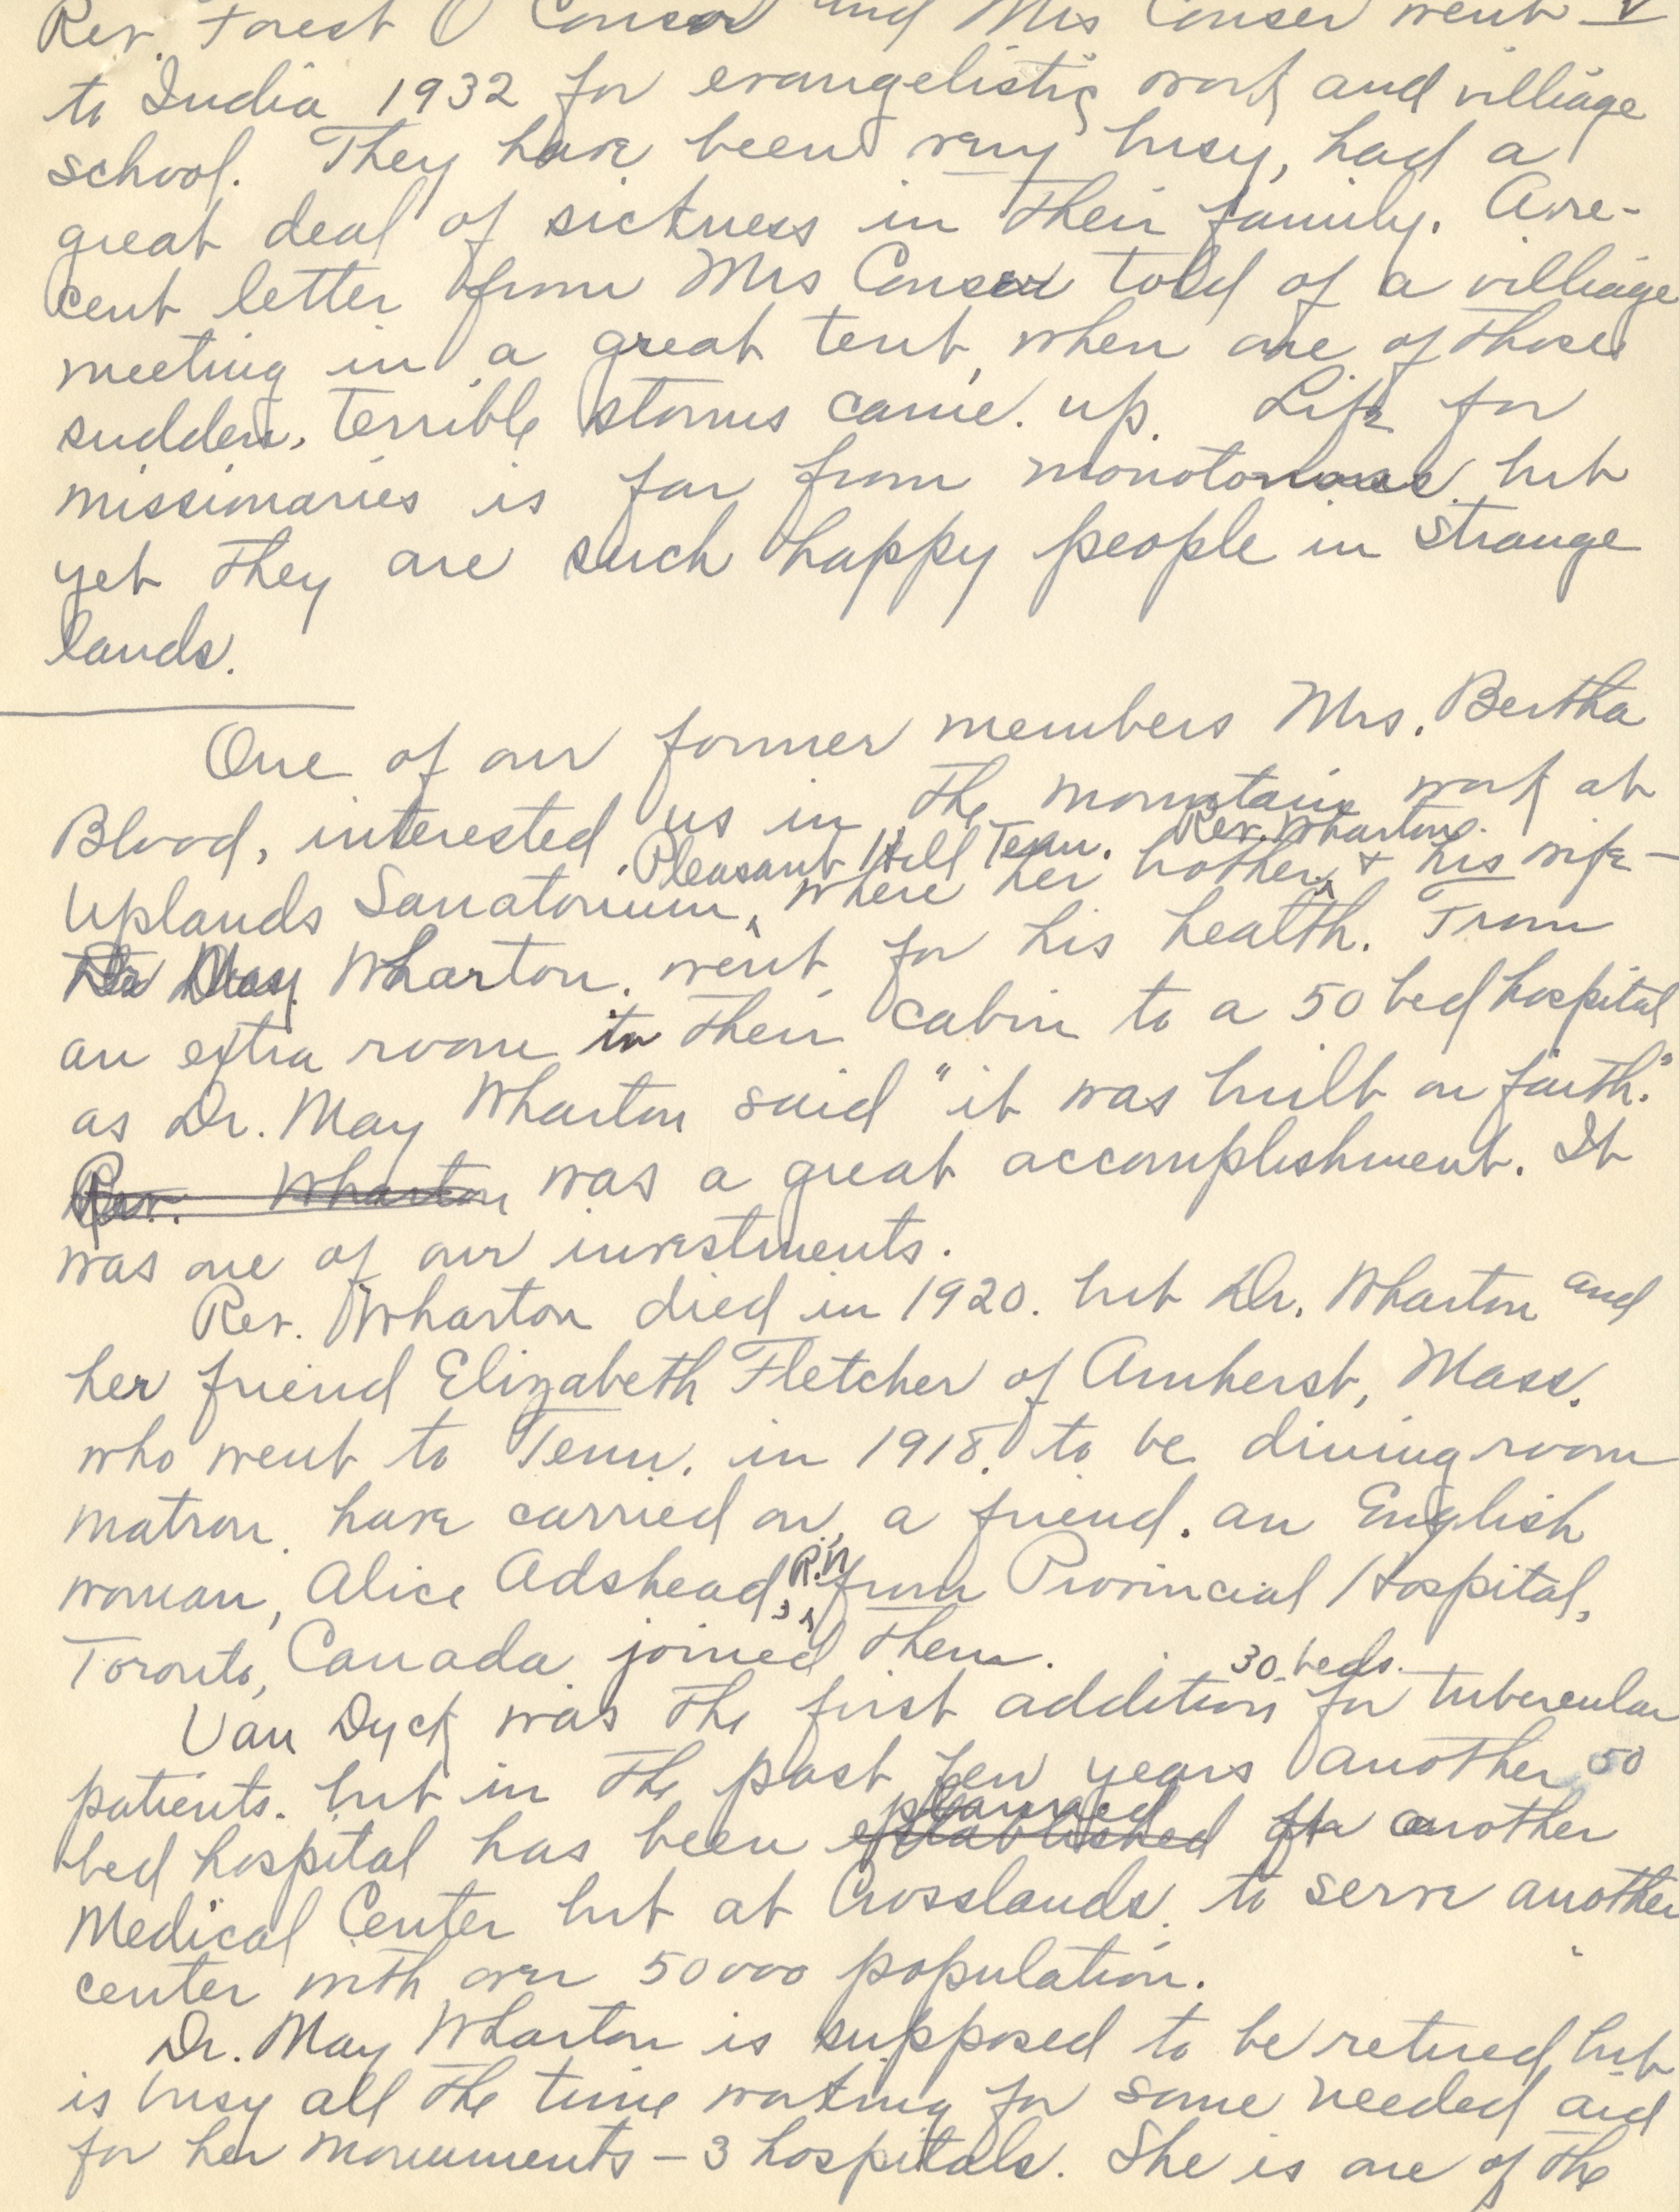 Rev. Forest O Conser and Mrs Conser went
to India 1932 for evangelistic work and villiage
school. They have been very busy, had a
great deal of sickness in their family. A re-
cent letter from Mrs Conser told of a villiage
meeting in a great tent, when one of those
sudden, terrible storms came up. Life for
missionaries is far from monotonous but
yet they are such happy people in strange
lands.
One of our former members Mrs. Bertha
Blood, interested us in the mountain work at
Pleasant Hill Tenn. Rev. Wharton
Uplands Sanatorium, where her brother & his wife -
Dr May Wharton, went for his health. From
an extra room in their cabin to a 50 bed hospital
as Dr. May Wharton said "it was built on faith."
Rev. Wharton was a great accomplishment. It
was one of our investments.
Rev. Wharton died in 1920. but Dr. Wharton and
her friend Elizabeth Fletcher of Amherst, Mass.
who went to Tenn. in 1918. to be dining room
matron. have carried on, a friend. an English
woman, Alice Adshead, R.N from Provincial Hospital,
Toronto, Canada joined them.
30 beds.
Van Dyck was the first addition for tubercular
patients. but in the past few years another 50
planned
bed hospital has been established another
Medical Center but at Crosslands. to serve another
center with over 50000 population.
Dr. May Wharton is supposed to be retired, but
is busy all the time working for some needed aid
for her monuments - 3 hospitals. She is one of the